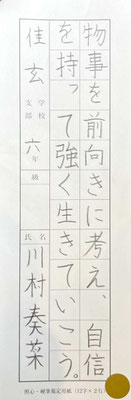 物事を前向きに考え、自信
を持って強く生きていこう。
佳玄
学校
支部
六年
級
氏名
川村奏菜
照心・硬筆規定用紙(12字×2行)